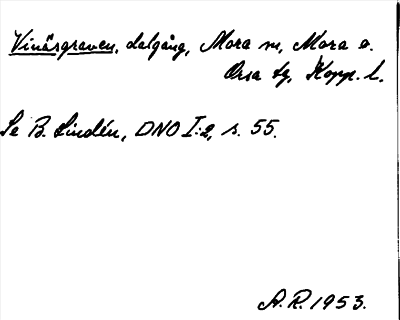 Vinäsgraven, dalgång, Mora sn, Mora o.
Orsa tg, Kopp. l.
Se B. Lindén, DNO I:2, s. 55.
A.R. 1953.